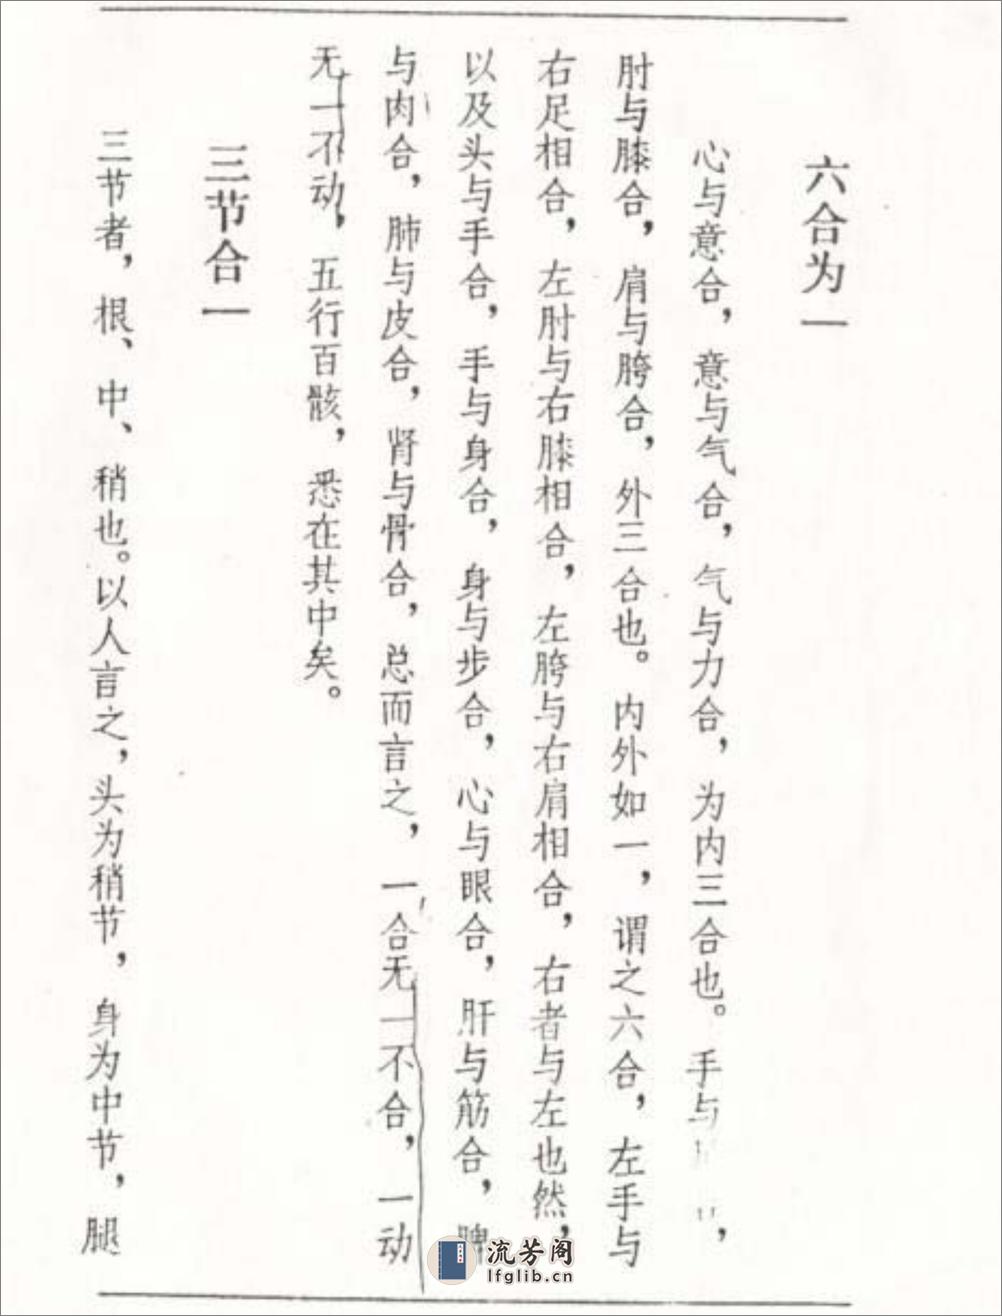 六合为一
心与意合，意与气合，气与力合，为内三合也。手与
肘与膝合，肩与胯合，外三合也。内外如一，谓之六合，左手与
右足相合，左肘与右膝相合，左胯与右肩相合，右者与左也然，
以及头与手合，手与身合，身与步合，心与眼合，肝与筋合，脾
与肉合，肺与皮合，肾与骨合，总而言之，一合无一不合，一动
无一不动，五行百骸，悉在其中矣。
三节合一
三节者，根、中、稍也。以人言之，头为稍节，身为中节，腿
流芳阁
lfglib.cn